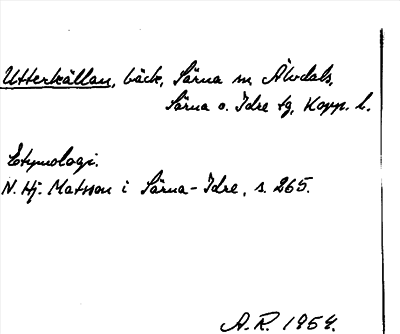 Utterkällan, bäck, Särna sn Älvdals,
Särna o. Idre tg, Kopp. l.
Etymologi.
N. Hj. Matsson i Särna-Idre, s. 265.
A.R. 1954.